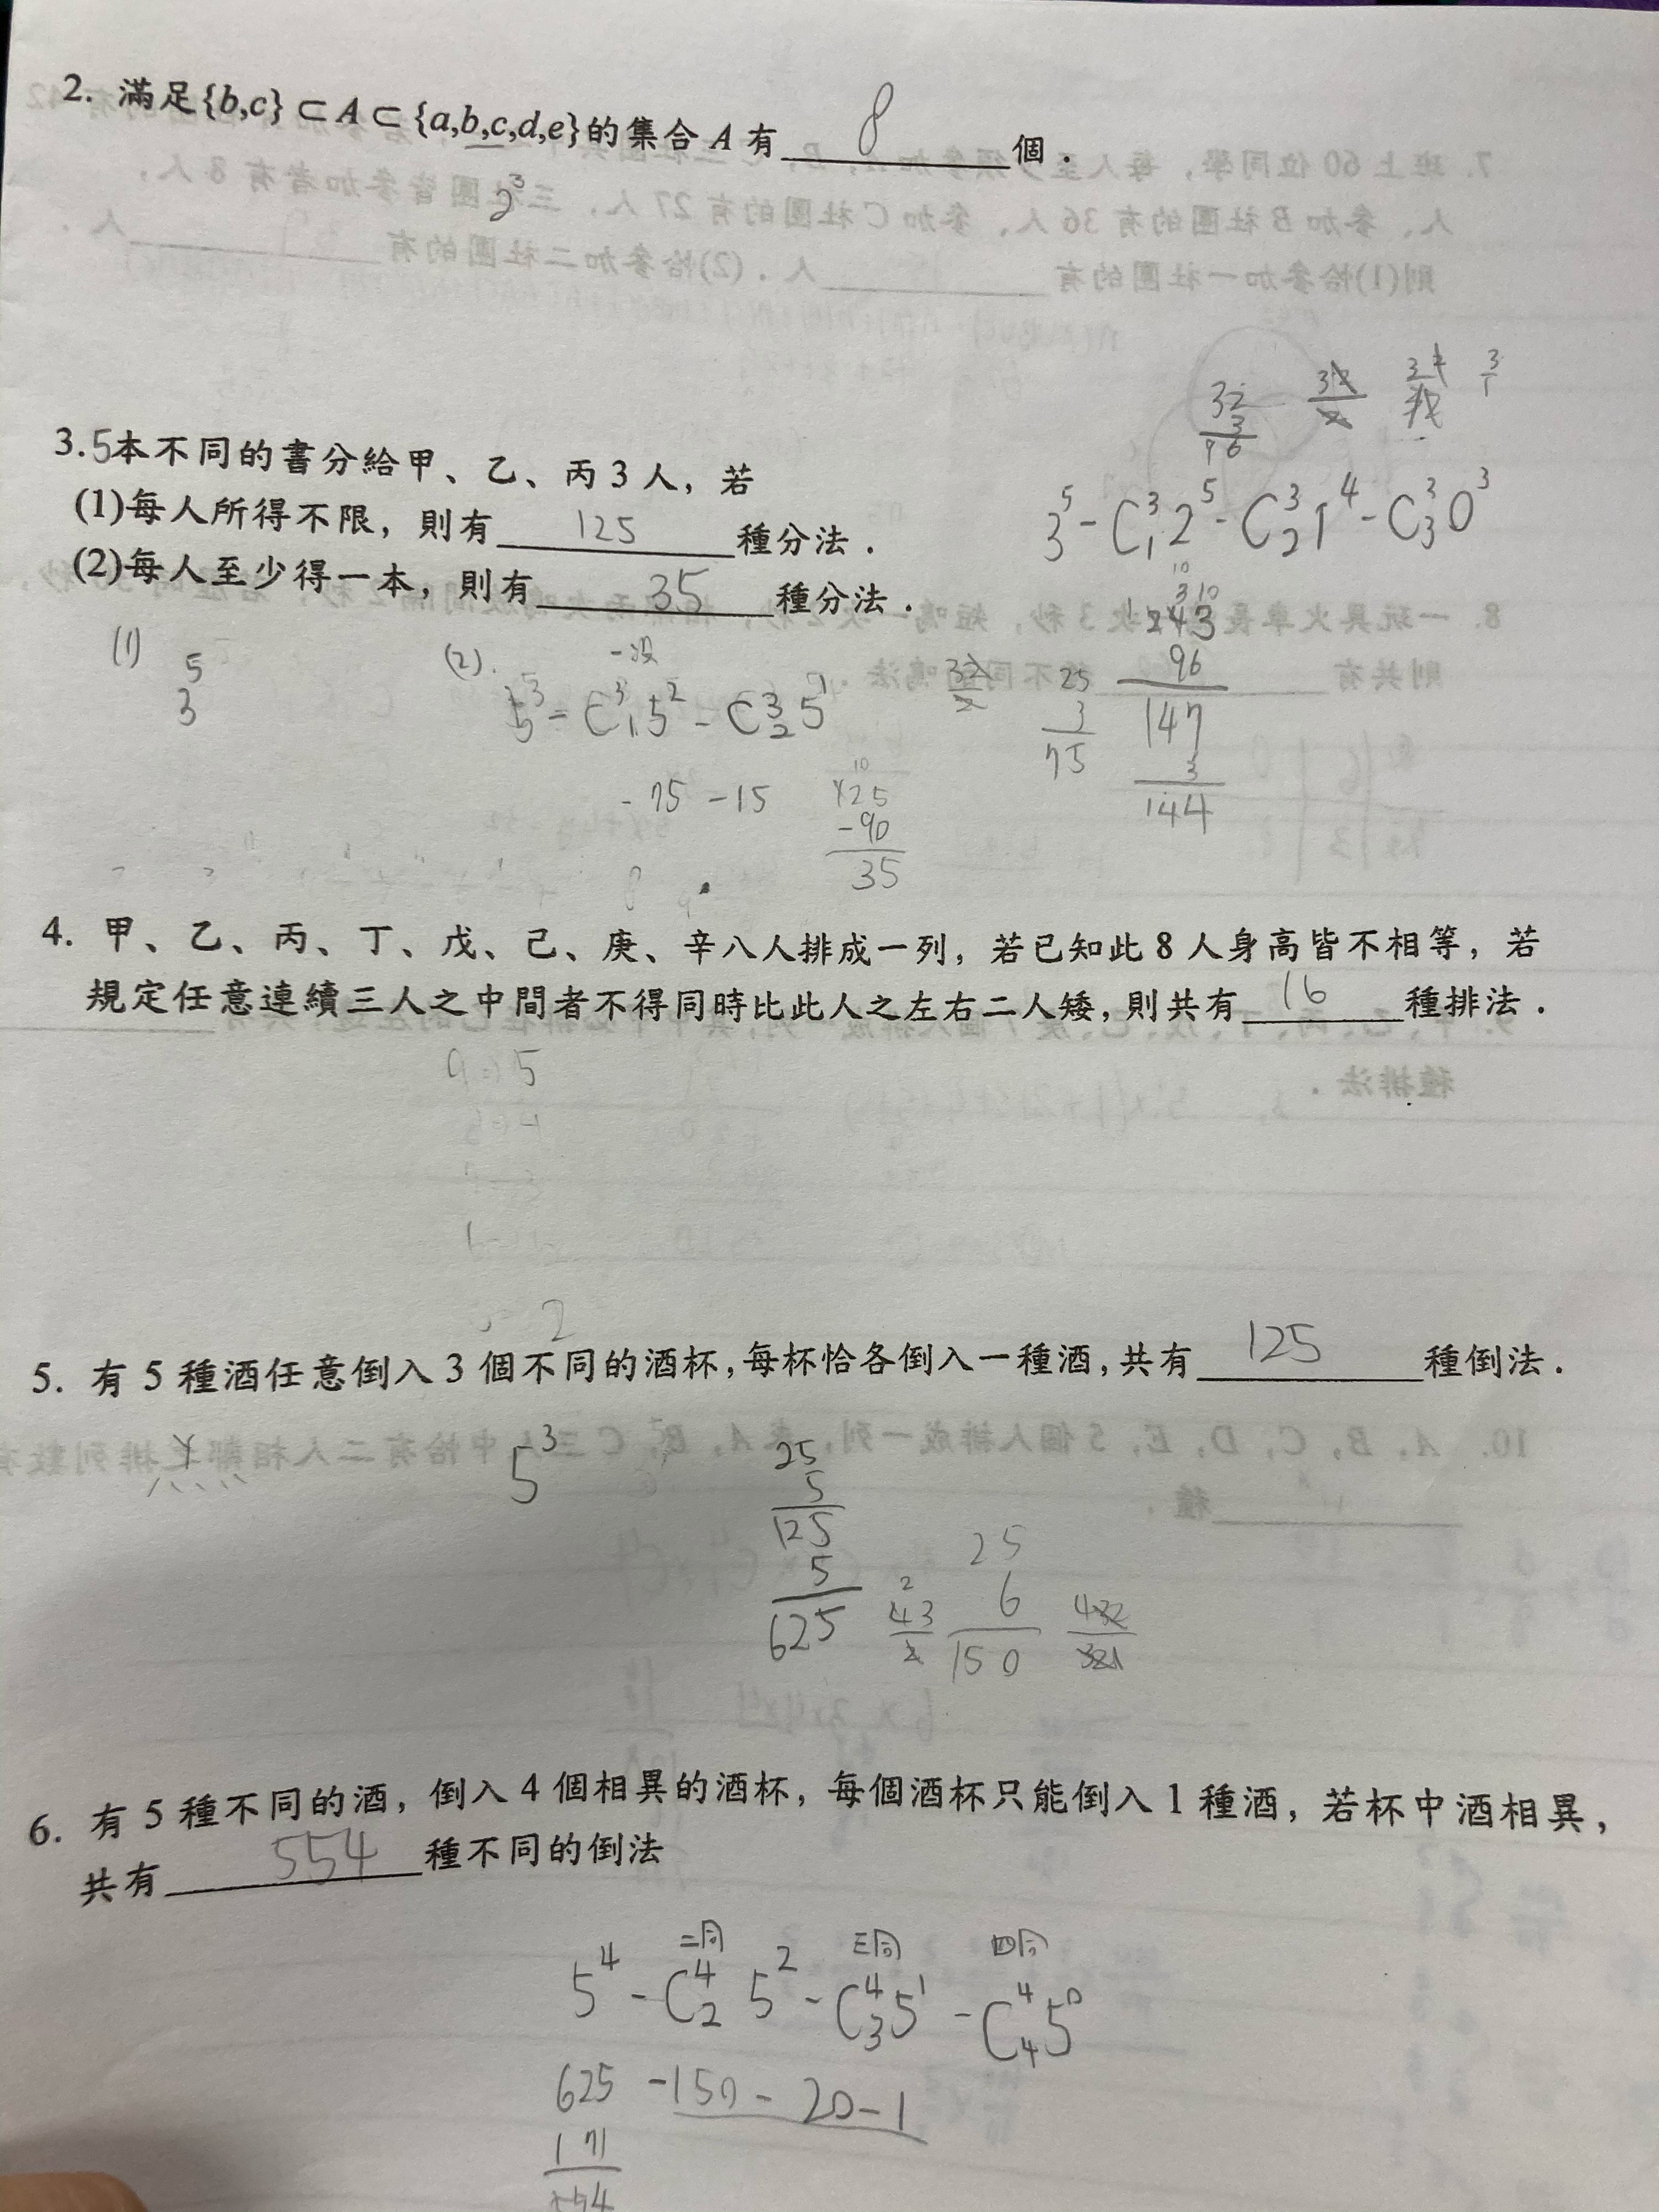 2. 滿足{b,c}⊂A⊂{a,b,c,d,e}的集合 A 有 8 個．
2³
3. 5本不同的書分給甲、乙、丙 3 人，若
(1)每人所得不限，則有 125 種分法．
(2)每人至少得一本，則有 35 種分法．
32
3
96
3⁵-C³₁2⁵-C³₂1⁴-C³₃0³
243
96
147
3
144
25
3
75
(1)
3⁵
(2).
一沒
5³-C³₁5²-C³₂5¹
-75-15
125
-90
35
4. 甲、乙、丙、丁、戊、己、庚、辛八人排成一列，若已知此 8 人身高皆不相等，若
規定任意連續三人之中間者不得同時比此人之左右二人矮，則共有 16 種排法．
5. 有 5 種酒任意倒入 3 個不同的酒杯，每杯恰各倒入一種酒，共有 125 種倒法．
5³
25
5
125
5
625
43
2
25
6
150
432
321
6. 有 5 種不同的酒，倒入 4 個相異的酒杯，每個酒杯只能倒入 1 種酒，若杯中酒相異，
共有 554 種不同的倒法
二同 三同 四同
5⁴-C⁴₂5²-C⁴₃5¹-C⁴₄5⁰
625-150-20-1
171
554